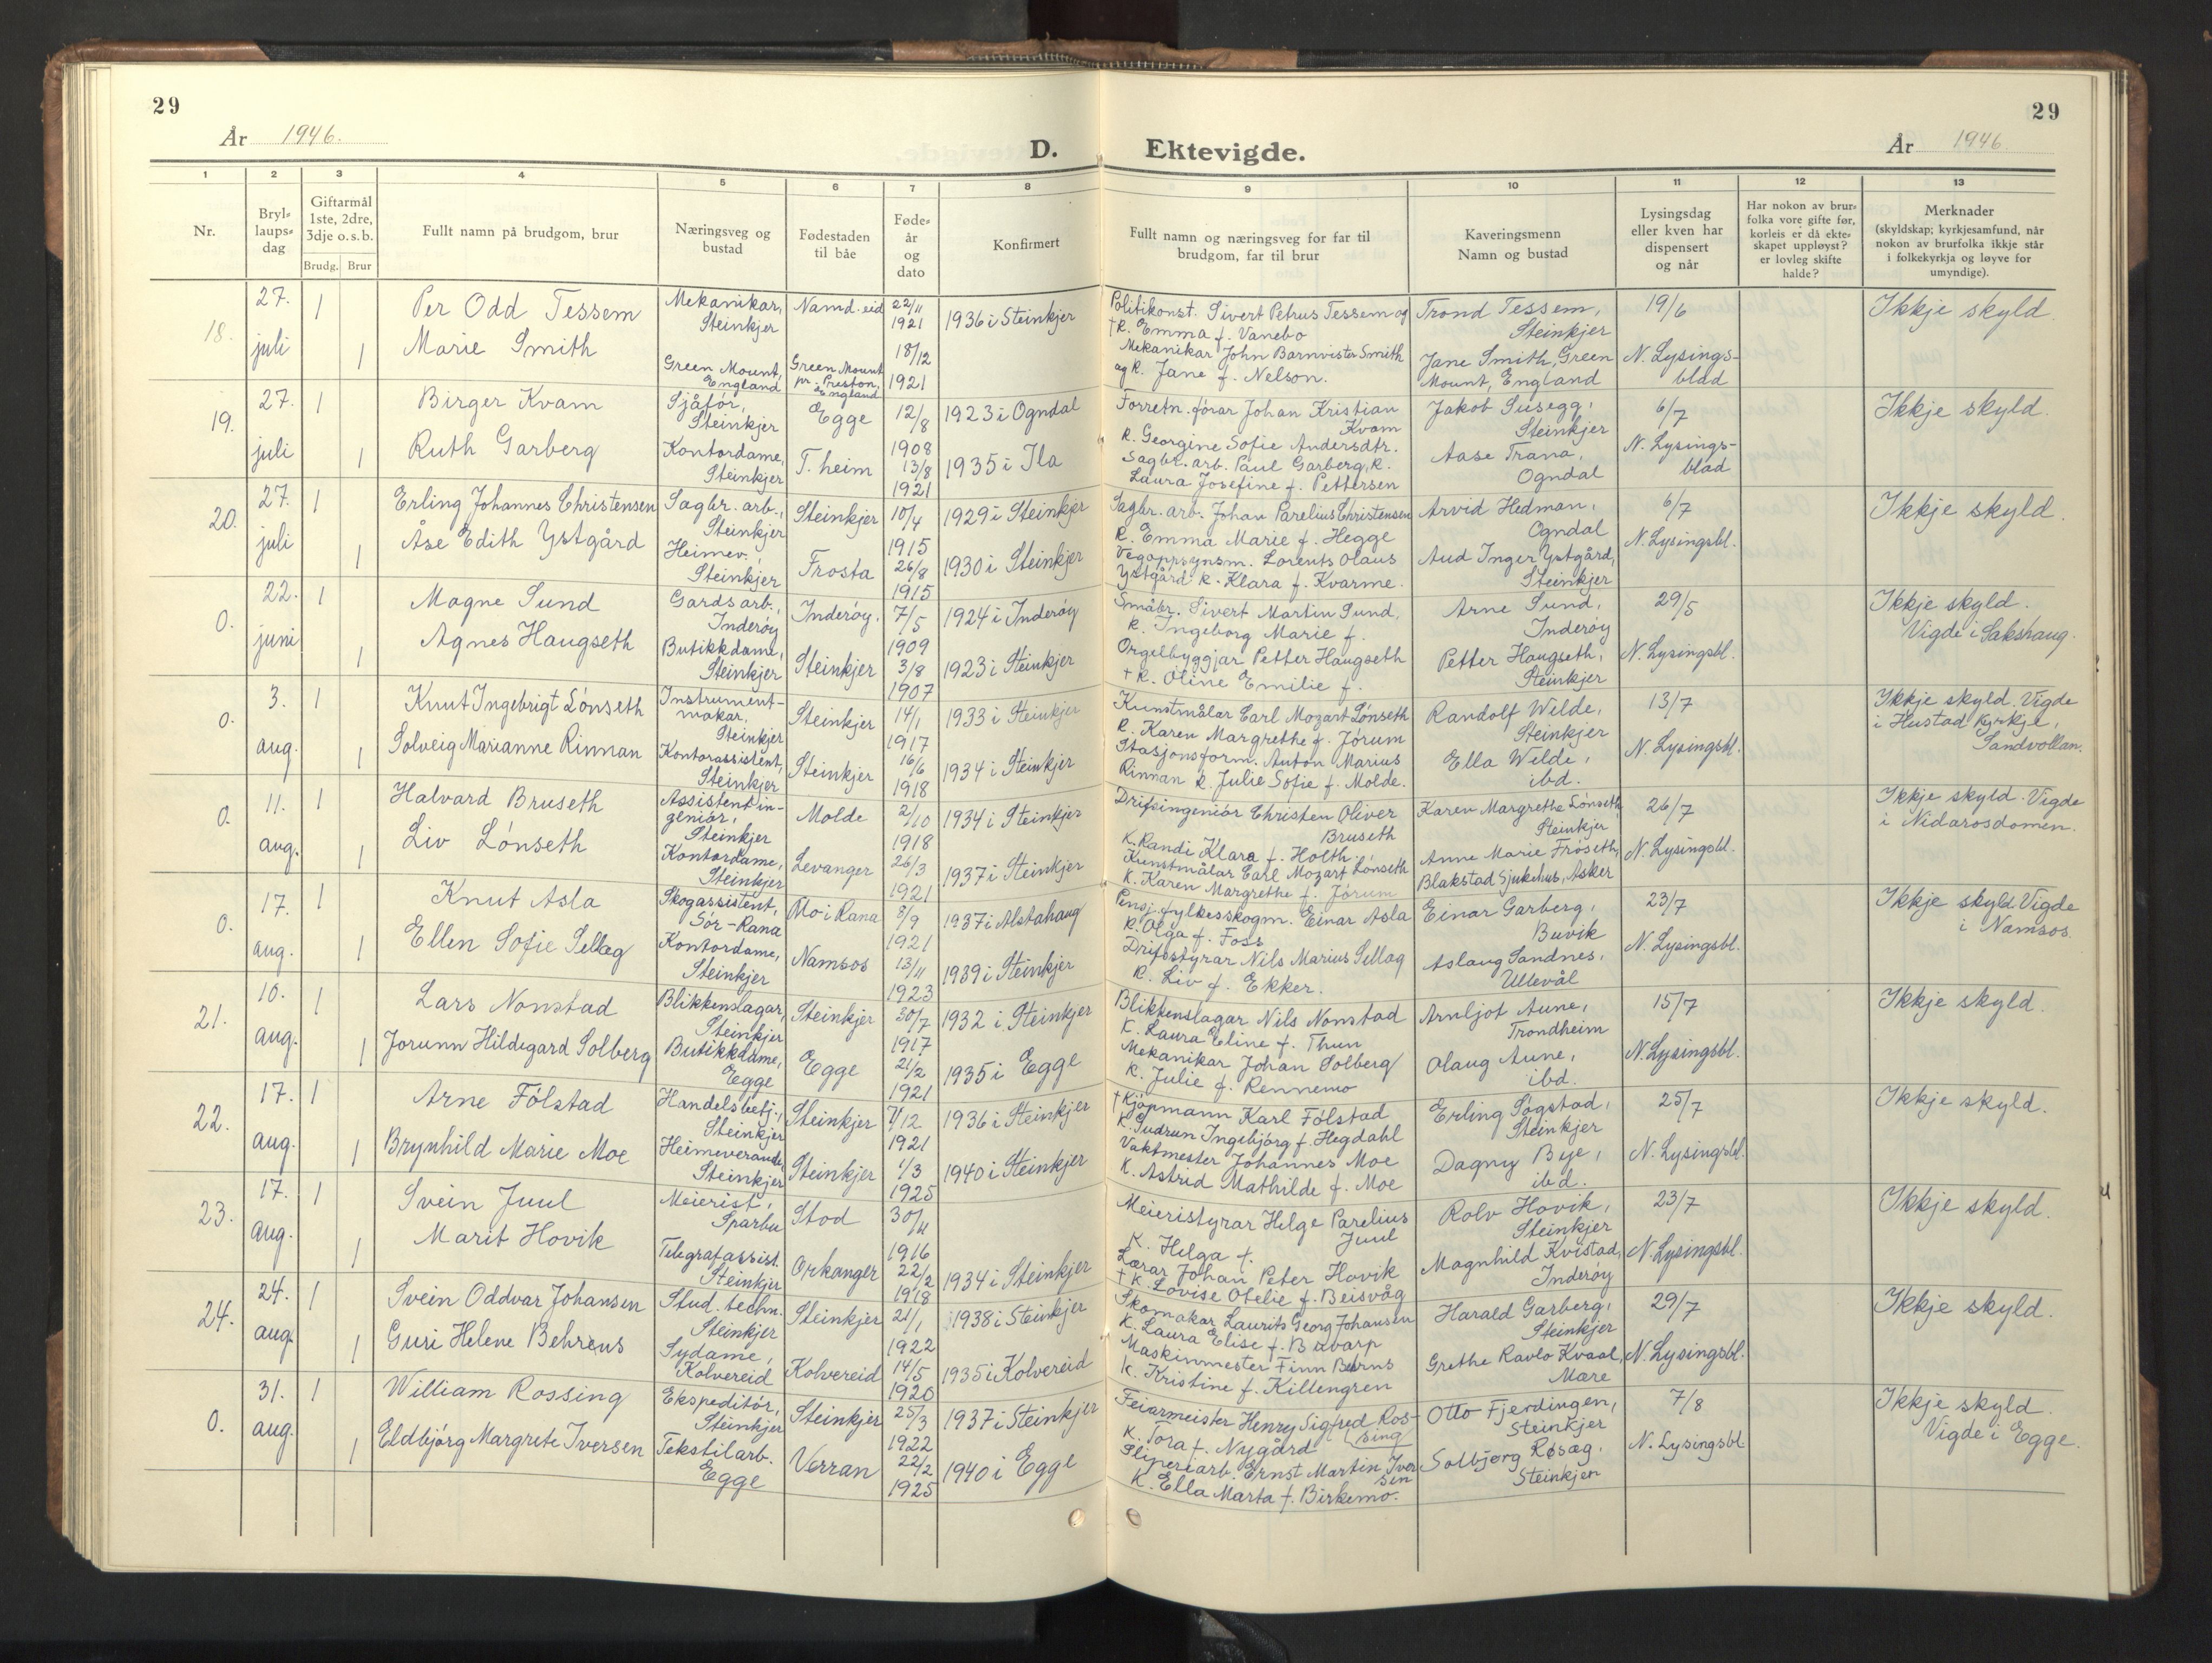 29
29
År 1946.
D. Ektevigde.
År 1946.
1 2 3 4 5 6 7 8 9 10 11 12 13
Nr.
Bryl-
laups-
dag
Giftarmål
1ste, 2dre,
3dje o. s. b.
Brudg. Brur
Fullt namn på brudgom, brur
Næringsveg og
bustad
Fødestaden
til båe
Føde-
år
og
dato
Konfirmert
Fullt namn og næringsveg for far til
brudgom, far til brur
Kaveringsmenn
Namn og bustad
Lysingsdag
eller kven har
dispensert
og når
Har nokon av brur-
folka vore gifte før,
korleis er då ekte-
skapet uppløyst?
er lovleg skifte
halde?
Merknader
(skyldskap; kyrkjesamfund, når
nokon av brurfolka ikkje står
i folkekyrkja og løyve for
umyndige).
18.
27.
juli
1
1
Per Odd Tessem
Marie Smith
Mekanikar,
Steinkjer
Green Mount,
England
Namd. eid
Green Mount
pr. Preston,
England
22/11
1921
18/12
1921
1936 i Steinkjer
Politikonst. Sivert Petrus Tessem og
†K. Emma f. Vanebo
Mekanikar John Barnvister Smith
og K. Jane f. Nelson.
Trond Tessem,
Steinkjer
Jane Smith, Green
Mount, England
19/6
N. Lysings-
blad
Ikkje skyld.
19.
27.
juli
1
1
Birger Kvam
Ruth Garberg
Sjåfør,
Steinkjer
Kontordame,
Steinkjer
Egge
T. heim
12/8
1908
13/8
1921
1923 i Ogndal
1935 i Ila
Forretn. førar Johan Kristian
Kvam
K. Georgine Sofie Andersdtr.
Sagbr. arb. Paul Garberg, K.
Laura Josefine f. Pettersen
Jakob Susegg,
Steinkjer
Aase Trana,
Ogndal
6/7
N. Lysings-
blad
Ikkje skyld.
20.
27.
juli
1
1
Erling Johannes Christensen
Åse Edith Ystgård
Sagbr. arb.,
Steinkjer
Heimev.,
Steinkjer
Steinkjer
Frosta
10/4
1915
26/8
1915
1929 i Steinkjer
1930 i Steinkjer
Sagbr. arb. Johan Parelius Christensen
K. Emma Marie f. Hegge
Vegoppsynsm. Lorents Olaus
Ystgård K. Klara f. Kvarme.
Arvid Hedman,
Ogndal
Aud Inger Ystgård,
Steinkjer
6/7
N. Lysingsbl.
Ikkje skyld.
0.
22.
juni
1
1
Magne Sund
Agnes Haugseth
Gardsarb.,
Inderøy
Butikkdame,
Steinkjer
Inderøy.
Steinkjer
7/5
1909
3/8
1907
1924 i Inderøy
1923 i Steinkjer
Småbr. Sivert Martin Sund,
K. Ingeborg Marie f.
Orgelbyggjar Petter Haugseth
†K. Oline Emilie f.
Arne Sund,
Inderøy
Petter Haugseth,
Steinkjer
29/5
N. Lysingsbl.
Ikkje skyld.
Vigde i Sakshaug.
0.
3.
aug.
1
1
Knut Ingebrigt Lønseth
Solveig Marianne Rinnan
Instrument-
makar,
Steinkjer
Kontorassistent,
Steinkjer
Steinkjer
Steinkjer
14/1
1917
16/6
1918
1933 i Steinkjer
1934 i Steinkjer
Kunstmålar Carl Mozart Lønseth
K. Karen Margrethe f. Jørum
Stasjonsform. Anton Marius
Rinnan K. Julie Sofie f. Molde.
Randolf Wilde,
Steinkjer
Ella Wilde,
ibd.
13/7
N. Lysingsbl.
Ikkje skyld. Vigde
i Hustad kyrkje,
Sandvollan.
0.
11.
aug.
1
1
Halvard Bruseth
Liv Lønseth
Assistentin-
geniør,
Steinkjer
Kontordame,
Steinkjer
Molde
Levanger
2/10
1918
26/3
1921
1934 i Steinkjer
1937 i Steinkjer
Drifsingeniør Christen Oliver
Bruseth
K. Randi Klara f. Holth.
Kunstmålar Carl Mozart Lønseth
K. Karen Margrethe f. Jørum
Karen Margrethe Lønseth,
Steinkjer
Anne Marie Frøseth,
Blakstad Sjukehus, Asker
26/7
N. Lysingsbl.
Ikkje skyld. Vigde
i Nidarosdomen.
0.
17.
aug.
1
1
Knut Asla
Ellen Sofie Sellæg
Skogassistent,
Sør-Rana
Kontordame,
Steinkjer
Mo i Rana
Namsos
8/9
1921
13/11
1923
1937 i Alstahaug
1939 i Steinkjer
Pensj. fylkesskogm. Einar Asla
K. Olga f. Foss
Drifsstyrar Nils Marius Sellæg
K. Liv f. Ekker.
Einar Garberg,
Buvik
Aslaug Sandnes,
Ullevål
23/7
N. Lysingsbl.
Ikkje skyld. Vigde
i Namsos.
21.
10.
aug.
1
1
Lars Nonstad
Jorunn Hildegard Solberg
Blikkenslagar,
Steinkjer
Butikkdame,
Egge
Steinkjer
Egge
30/7
1917
21/2
1921
1932 i Steinkjer
1935 i Egge
Blikkenslagar Nils Nonstad
K. Laura Eline f. Thun
Mekanikar Johan Solberg
K. Julie f. Rennemo
Arnljot Aune,
Trondheim
Olaug Aune,
ibd.
15/7
N. Lysingsbl.
Ikkje skyld.
22.
17.
aug.
1
1
Arne Følstad
Brynhild Marie Moe
Handelsbetj.,
Steinkjer
Heimeverande,
Steinkjer
Steinkjer
Steinkjer
7/12
1921
1/3
1925
1936 i Steinkjer
1940 i Steinkjer
†Kjøpmann Karl Følstad
K. Gudrun Ingebjørg f. Hegdahl
Vaktmester Johannes Moe
K. Astrid Mathilde f. Moe
Erling Søgstad,
Steinkjer
Dagny Bye,
ibd.
25/7
N. Lysingsbl.
Ikkje skyld.
23.
17.
aug.
1
1
Svein Juul
Marit Hovik
Meierist,
Sparbu
Telegrafassist.
Steinkjer
Stod
Orkanger
30/11
1916
22/2
1918
1934 i Steinkjer
Meieristyrar Helge Parelius
Juul
K. Helga f.
Lærar Johan Peter Hovik
†K. Lovise Otelie f. Beisvåg
Rolv Hovik,
Steinkjer
Magnhild Kvistad,
Inderøy
23/7
N. Lysingsbl.
Ikkje skyld.
24.
24.
aug.
1
1
Svein Oddvar Johansen
Guri Helene Behrens
Stud. techn.
Steinkjer
Sydame,
Kolvereid
Steinkjer
Kolvereid
21/1
1922
14/5
1920
1938 i Steinkjer
1935 i Kolvereid
Skomakar Laurits Georg Johansen
K. Laura Elise f.
Maskinmester Finn
K. Kristine f. Killengren
Harald Garberg,
Steinkjer
Grethe Ravlo Kvaal,
Mære
29/7
N. Lysingsbl.
Ikkje skyld.
0.
31.
aug.
1
1
William Rossing
Eldbjørg Margrete Iversen
Ekspeditør,
Steinkjer
Tekstilarb.
Egge
Steinkjer
Verran
25/3
1922
22/2
1925
1937 i Steinkjer
1940 i Egge
Feiarmeister Henry Sigfred Ros-
sing
K. Tora f. Nygård
Sliperiarb. Ernst Martin Iver
sen
K. Ella Marta f. Birkemo.
Otto Fjerdingen,
Steinkjer
Solbjørg Røsæg,
Steinkjer
7/8
N. Lysingsbl
Ikkje skyld.
Vigde i Egge.